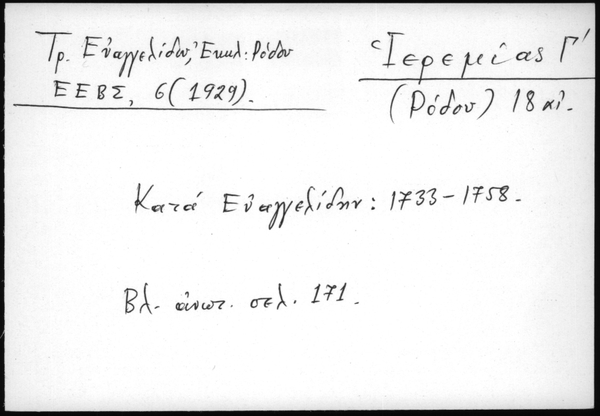 Τρ. Εὐαγγελίδου, Ἐκκλ: Ρόδου
ΕΕΒΣ, 6 (1929).
Ἱερεμίας Γ'
(Ρόδου) 18 αἰ.
Κατά Εὐαγγελίδην: 1733-1758.
Βλ. ἀνωτ. σελ. 171.